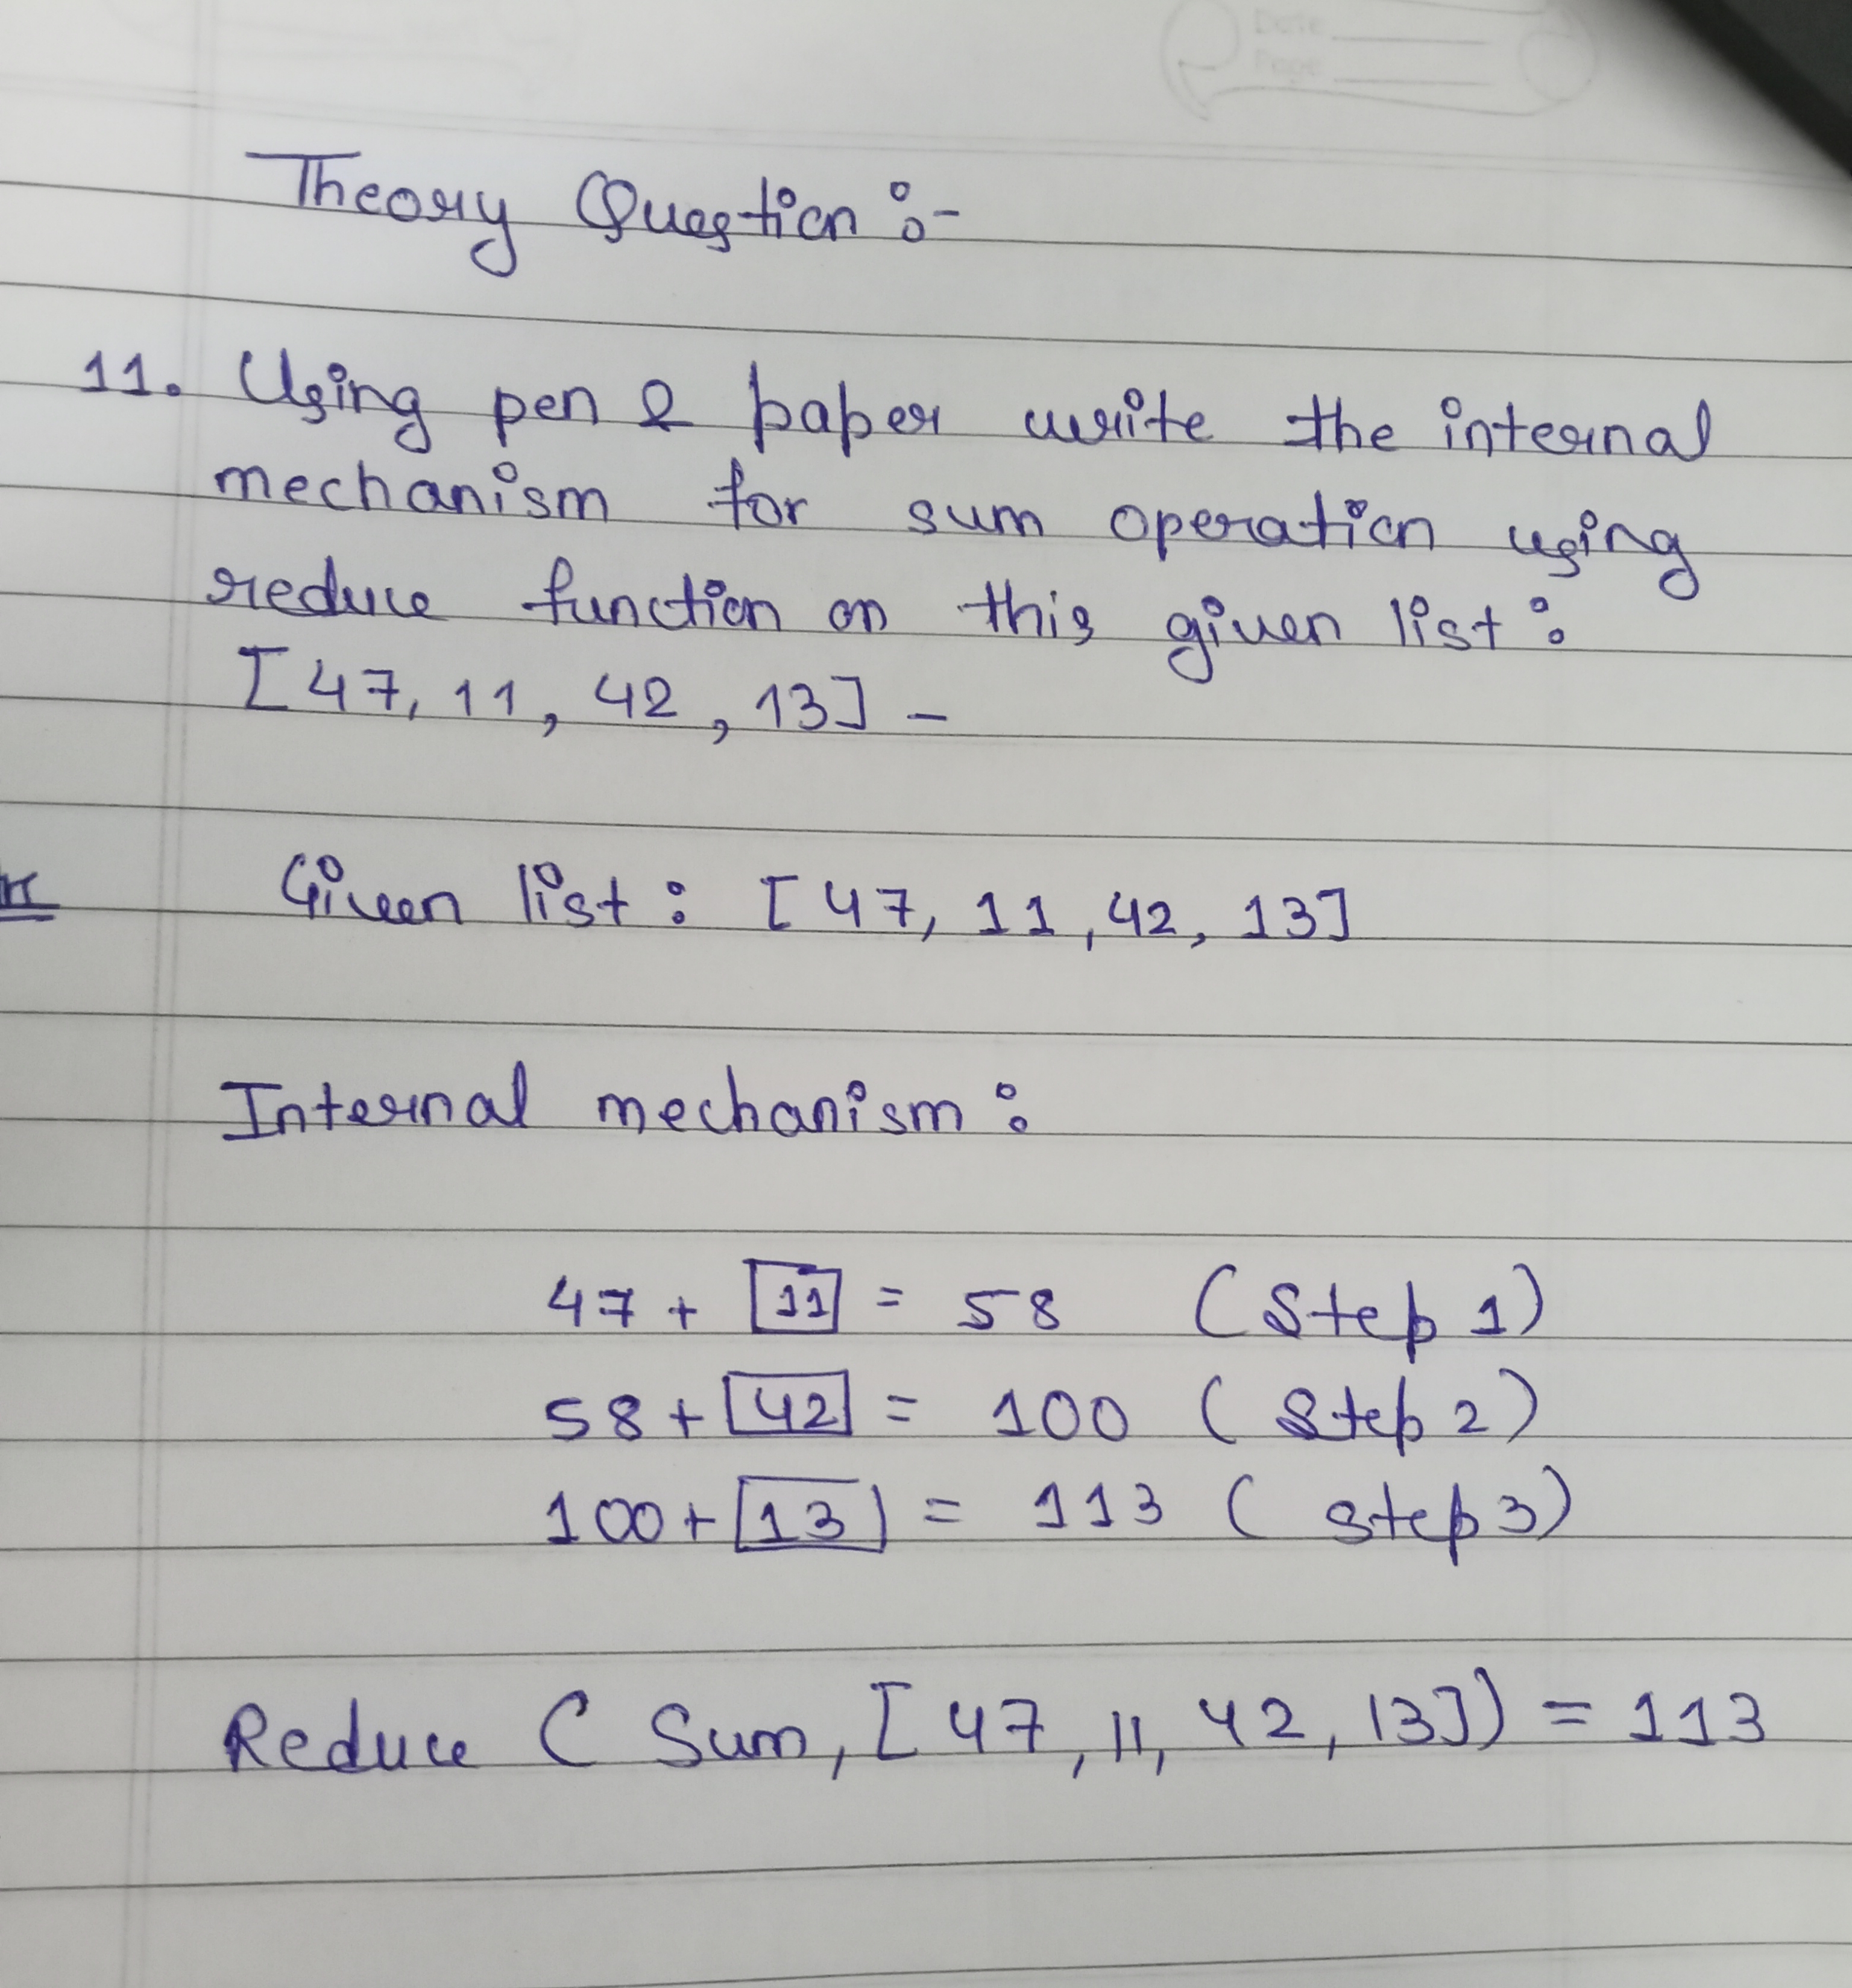 Date
Page
Theory Question :-
11. Using pen & paper write the internal
mechanism for sum operation using
reduce function on this given list :
[47, 11, 42, 13] -
Given list : [47, 11, 42, 13]
Internal mechanism :
47 + 11 = 58 (Step 1)
58 + 42 = 100 (Step 2)
100 + 13 = 113 (Step 3)
Reduce ( Sum, [47, 11, 42, 13]) = 113